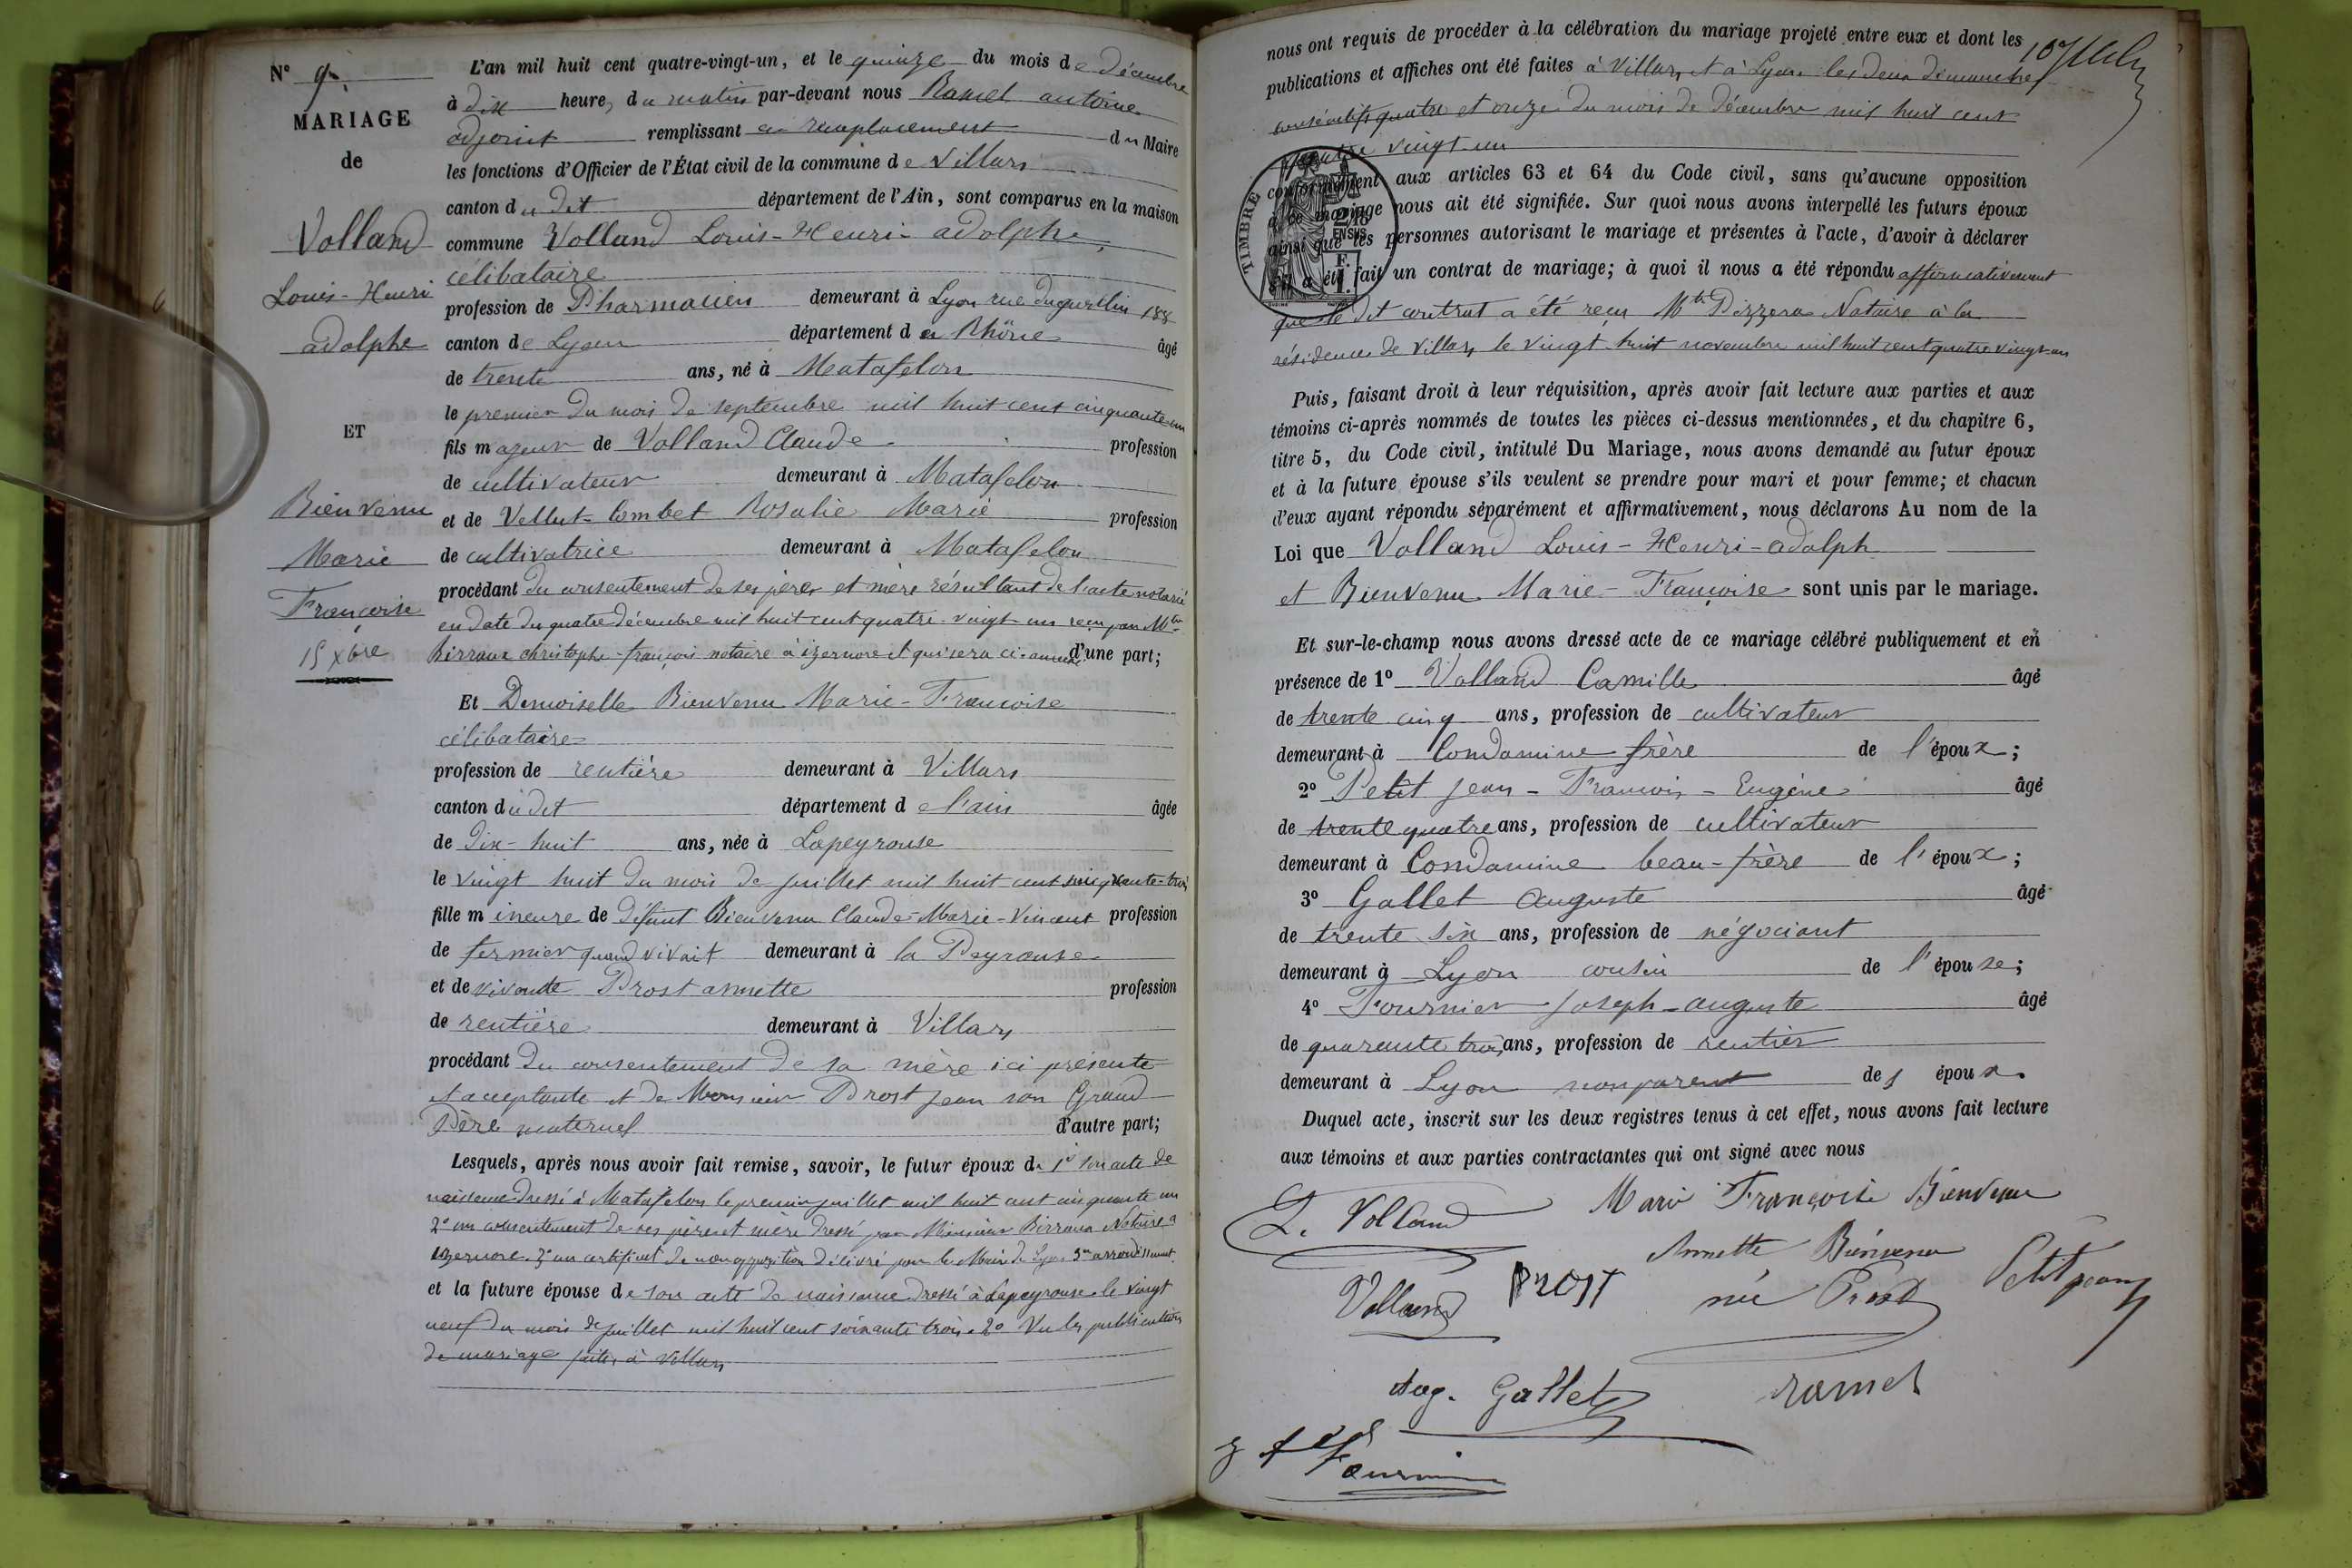 N° 9.
MARIAGE
de
Volland
Louis-Henri
adolphe
ET
Bienvenu
Marie
Françoise
15 Xbre
L'an mil huit cent quatre-vingt-un, et le quinze du mois de décembre
à dix heures du matin par-devant nous Ramel antoine
adjoint remplissant en remplacement du Maire
les fonctions d'Officier de l'État civil de la commune de Villars
canton du dit département de l'Ain, sont comparus en la maison
commune Volland Louis-Henri-adolphe,
célibataire
profession de Pharmacien demeurant à Lyon rue duguesclin 188
canton de Lyon département du Rhône âgé
de trente ans, né à Matafelon
le premier du mois de septembre mil huit cent cinquante-un
fils majeur de Volland Claude profession
de cultivateur demeurant à Matafelon
et de Vellut-Combet Rosalie Marie profession
de cultivatrice demeurant à Matafelon
procédant du consentement de ses père et mère résultant de l'acte notarié
en date du quatre décembre mil huit cent quatre-vingt-un reçu par Mtre
Birraux christophe-françois notaire à izernore et qui sera ci-annexé d'une part;
Et Demoiselle Bienvenu Marie-Francoise
célibataire
profession de rentière demeurant à Villars
canton dudit département de l'ain âgée
de dix-huit ans, née à Lapeyrouse
le vingt huit du mois de juillet mil huit cent soixante-trois
fille mineure de défunt Bienvenu Claude-Marie-Vincent profession
de fermier quand vivait demeurant à la Peyrouse
et de vivante Prost annette profession
de rentière demeurant à Villars
procédant du consentement de sa mère ici présente
et acceptante et de Monsieur Prost Jean son Grand
Père maternel d'autre part;
Lesquels, après nous avoir fait remise, savoir, le futur époux de 1° son acte de
naissance dressé à Matafelon le premier juillet mil huit cent cinquante un
2° un consentement de ses père et mère dressé par Monsieur Birraux Notaire a
izernore. 3° un certificat de non opposition délivré par le Maire de Lyon 3me arrondissement
et la future épouse de son acte de naissance dressé à Lapeyrouse le vingt
neuf du mois de juillet mil huit cent soixante trois. 2° Vu les publications
de mariage faites à Villars
nous ont requis de procéder à la célébration du mariage projeté entre eux et dont les
publications et affiches ont été faites à Villars et à Lyon les deux dimanches
consécutifs quatre et onze du mois de décembre mil huit cent
quatre vingt-un
TIMBRE
conformément aux articles 63 et 64 du Code civil, sans qu'aucune opposition
à ce mariage nous ait été signifiée. Sur quoi nous avons interpellé les futurs époux
ainsi que les personnes autorisant le mariage et présentes à l'acte, d'avoir à déclarer
s'il a été fait un contrat de mariage; à quoi il nous a été répondu affirmativement
que le dit contrat a été reçu Mtre Pizzera Notaire à la
résidence de Villars le vingt-huit novembre mil huit cent quatre vingt-un
Puis, faisant droit à leur réquisition, après avoir fait lecture aux parties et aux
témoins ci-après nommés de toutes les pièces ci-dessus mentionnées, et du chapitre 6,
titre 5, du Code civil, intitulé Du Mariage, nous avons demandé au futur époux
et à la future épouse s'ils veulent se prendre pour mari et pour femme; et chacun
d'eux ayant répondu séparément et affirmativement, nous déclarons Au nom de la
Loi que Volland Louis-Henri-adolph
et Bienvenu Marie-Françoise sont unis par le mariage.
Et sur-le-champ nous avons dressé acte de ce mariage célébré publiquement et en
présence de 1° Volland Camille âgé
de trente cinq ans, profession de cultivateur
demeurant à Condamine frère de l'époux;
2° Petit Jean-Francois-Eugène âgé
de trente quatre ans, profession de cultivateur
demeurant à Condamine beau-frère de l'époux;
3° Gallet auguste âgé
de trente six ans, profession de négociant
demeurant à Lyon cousin de l'épouse;
4° Fournier Joseph-auguste âgé
de quarante trois ans, profession de rentier
demeurant à Lyon non parent des époux.
Duquel acte, inscrit sur les deux registres tenus à cet effet, nous avons fait lecture
aux témoins et aux parties contractantes qui ont signé avec nous
L. Volland
Marie Françoise Bienvenu
Annette Bienvenu
née Prost
Petit jean
Volland
PROST
Aug. Gallet
ramel
Fournier